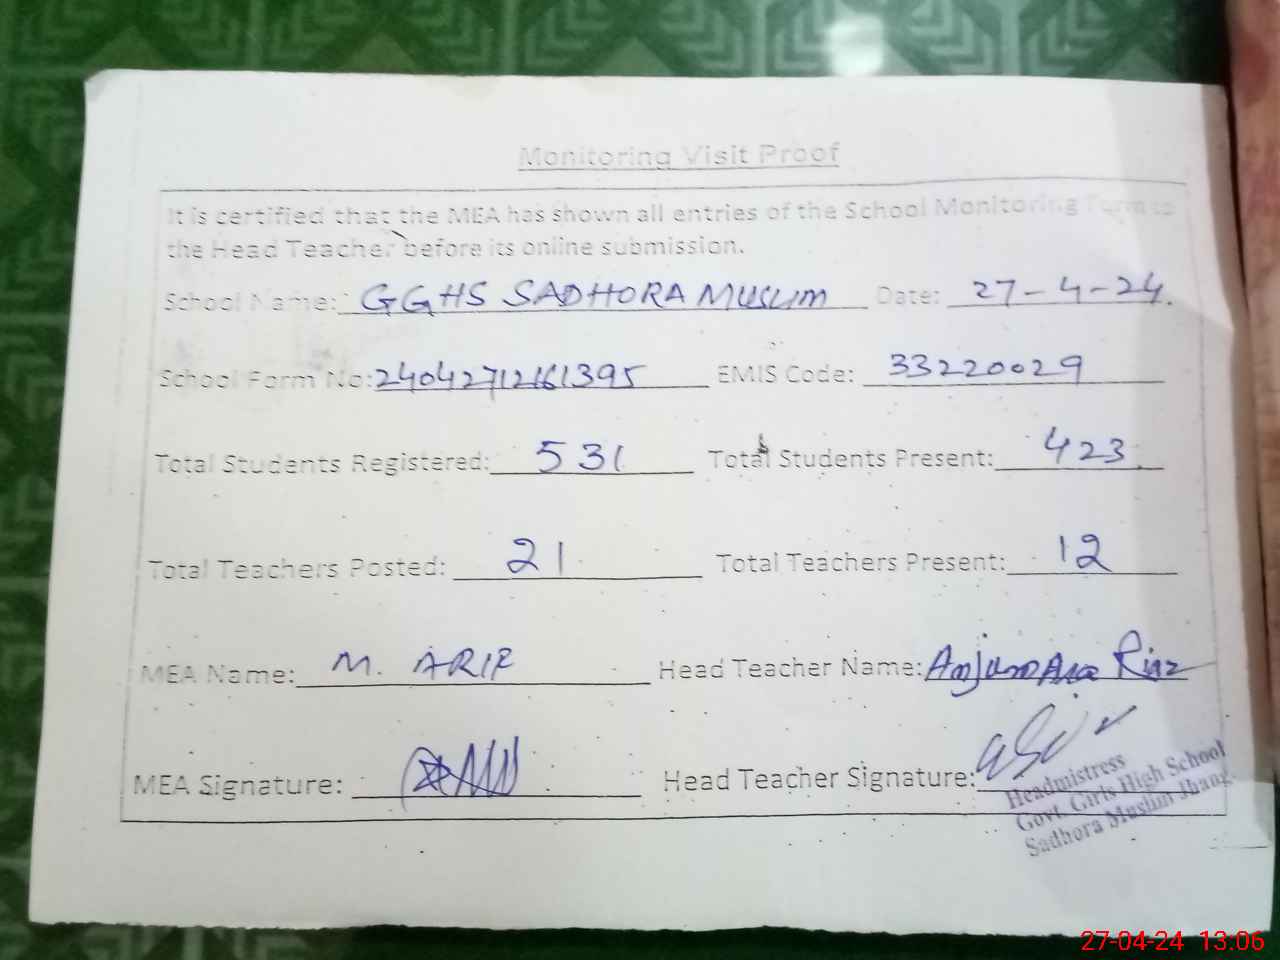 Monitoring Visit Proof
It is certified that the MEA has shown all entries of the School Monitoring Form to
the Head Teacher before its online submission.
School Name: GGHS SADHORA MUSLIM Date: 27-4-24.
School Form No: 24042712161395 EMIS Code: 33220029
Total Students Registered: 531 Total Students Present: 423
Total Teachers Posted: 21 Total Teachers Present: 12
MEA Name: M. ARIF Head Teacher Name: Anjum Ara Riaz
MEA Signature: Head Teacher Signature:
Headmistress
Govt. Girls High School
Sadhora Muslim Jhang
27-04-24 13:06